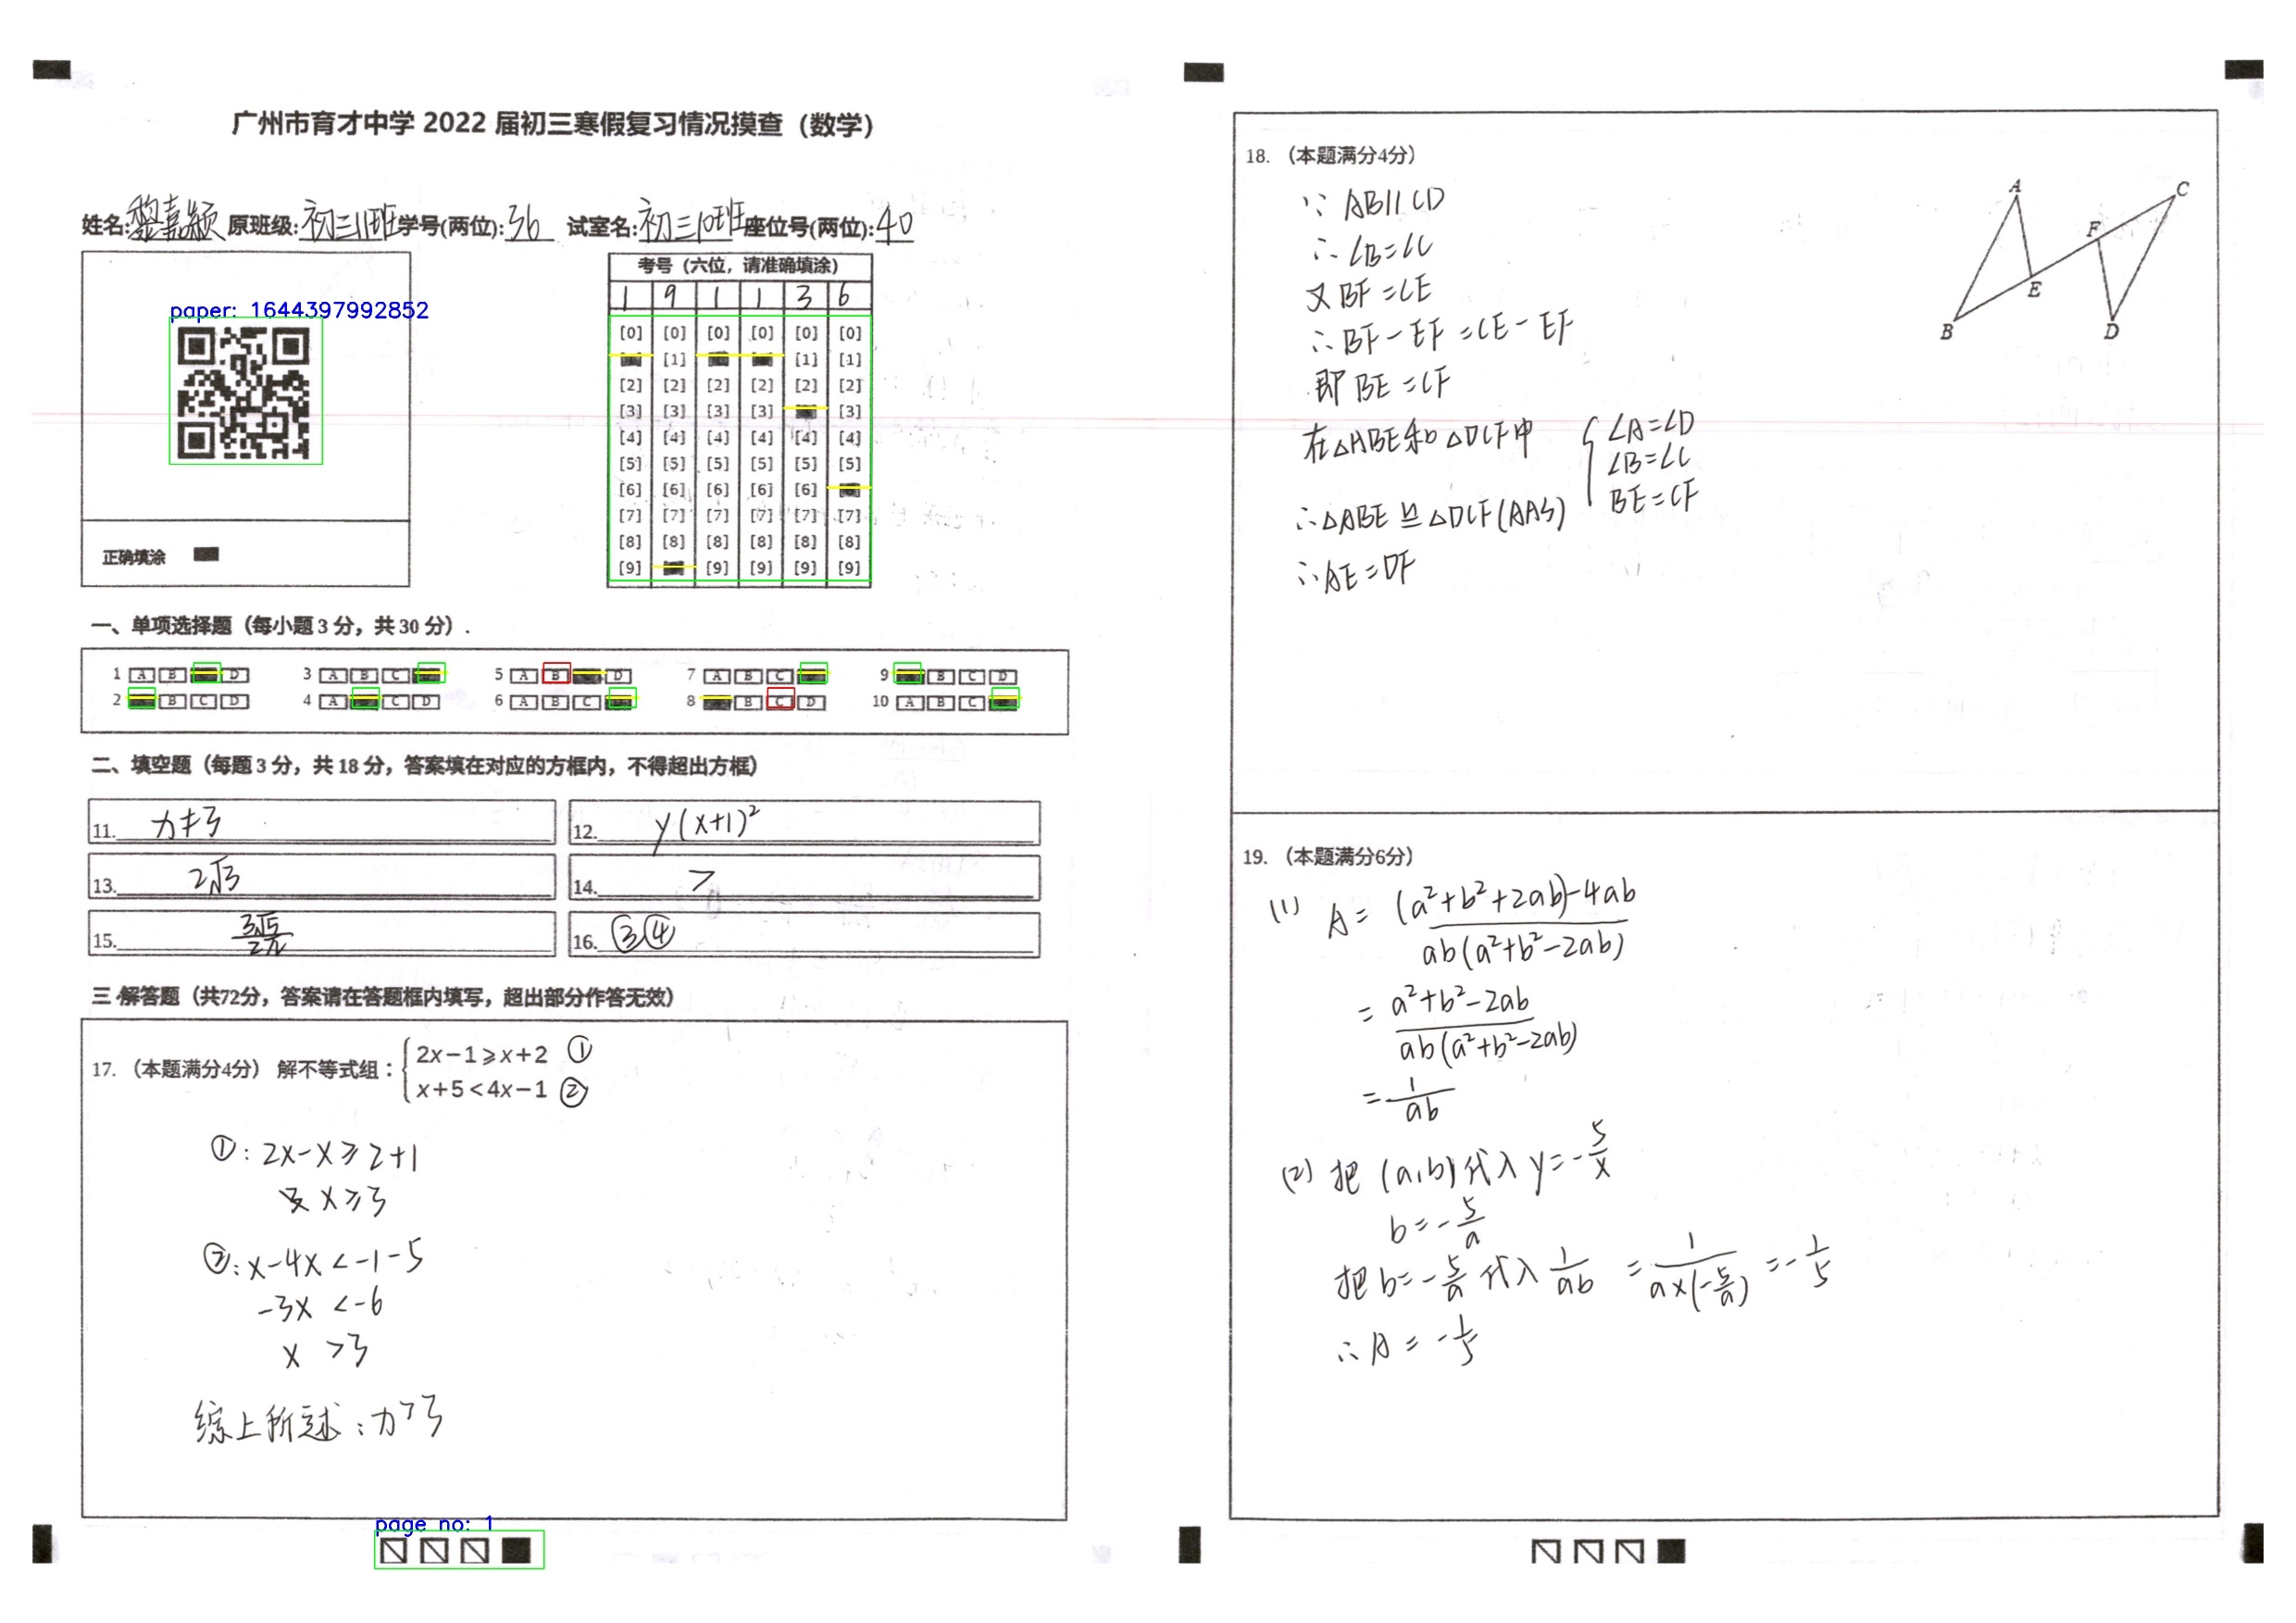 广州市育才中学 2022 届初三寒假复习情况摸查（数学）
姓名:黎嘉颖 原班级:初三11班 学号(两位):36 试室名:初三10班 座位号(两位):40
paper: 1644397992852
正确填涂
考号（六位，请准确填涂）
1 9 1 1 3 6
[0] [0] [0] [0] [0] [0]
[1] [1]  [1]
[2] [2] [2] [2] [2] [2]
[3] [3] [3] [3] [3]
[4] [4] [4] [4] [4] [4]
[5] [5] [5] [5] [5] [5]
[6] [6] [6] [6] [6]
[7] [7] [7] [7] [7] [7]
[8] [8] [8] [8] [8] [8]
[9] [9] [9] [9] [9]
一、单项选择题（每小题 3 分，共 30 分）.
1 A B D 3 A B C 5 A B D 7 A B C 9 B C D
2 B C D 4 A C D 6 A B C 8 B C D 10 A B C
二、填空题（每题 3 分，共 18 分，答案填在对应的方框内，不得超出方框）
11. x≠3
12. y(x+1)²
13. 2√3
14. >
15. 3√5/2π
16. ③④
三 解答题（共72分，答案请在答题框内填写，超出部分作答无效）
17. （本题满分4分） 解不等式组：{2x−1⩾x+2 ①
x+5<4x−1 ②
①: 2x-x≥2+1
x≥3
②: x-4x<-1-5
-3x <-6
x >3
综上所述: x>3
page no: 1
18. （本题满分4分）
A C F E B D
∵ AB∥CD
∴ ∠B=∠C
又 BF=CE
∴ BF-EF=CE-EF
即 BE=CF
在△ABE和△DCF中 {∠A=∠D
∠B=∠C
BE=CF
∴△ABE≌△DCF(AAS)
∴AE=DF
19. （本题满分6分）
(1) A= (a²+b²+2ab)-4ab / ab(a²+b²-2ab)
= a²+b²-2ab / ab(a²+b²-2ab)
= 1/ab
(2) 把 (a,b) 代入 y=-5/x
b=-5/a
把 b=-5/a 代入 1/ab = 1/a×(-5/a) =-1/5
∴A=-1/5